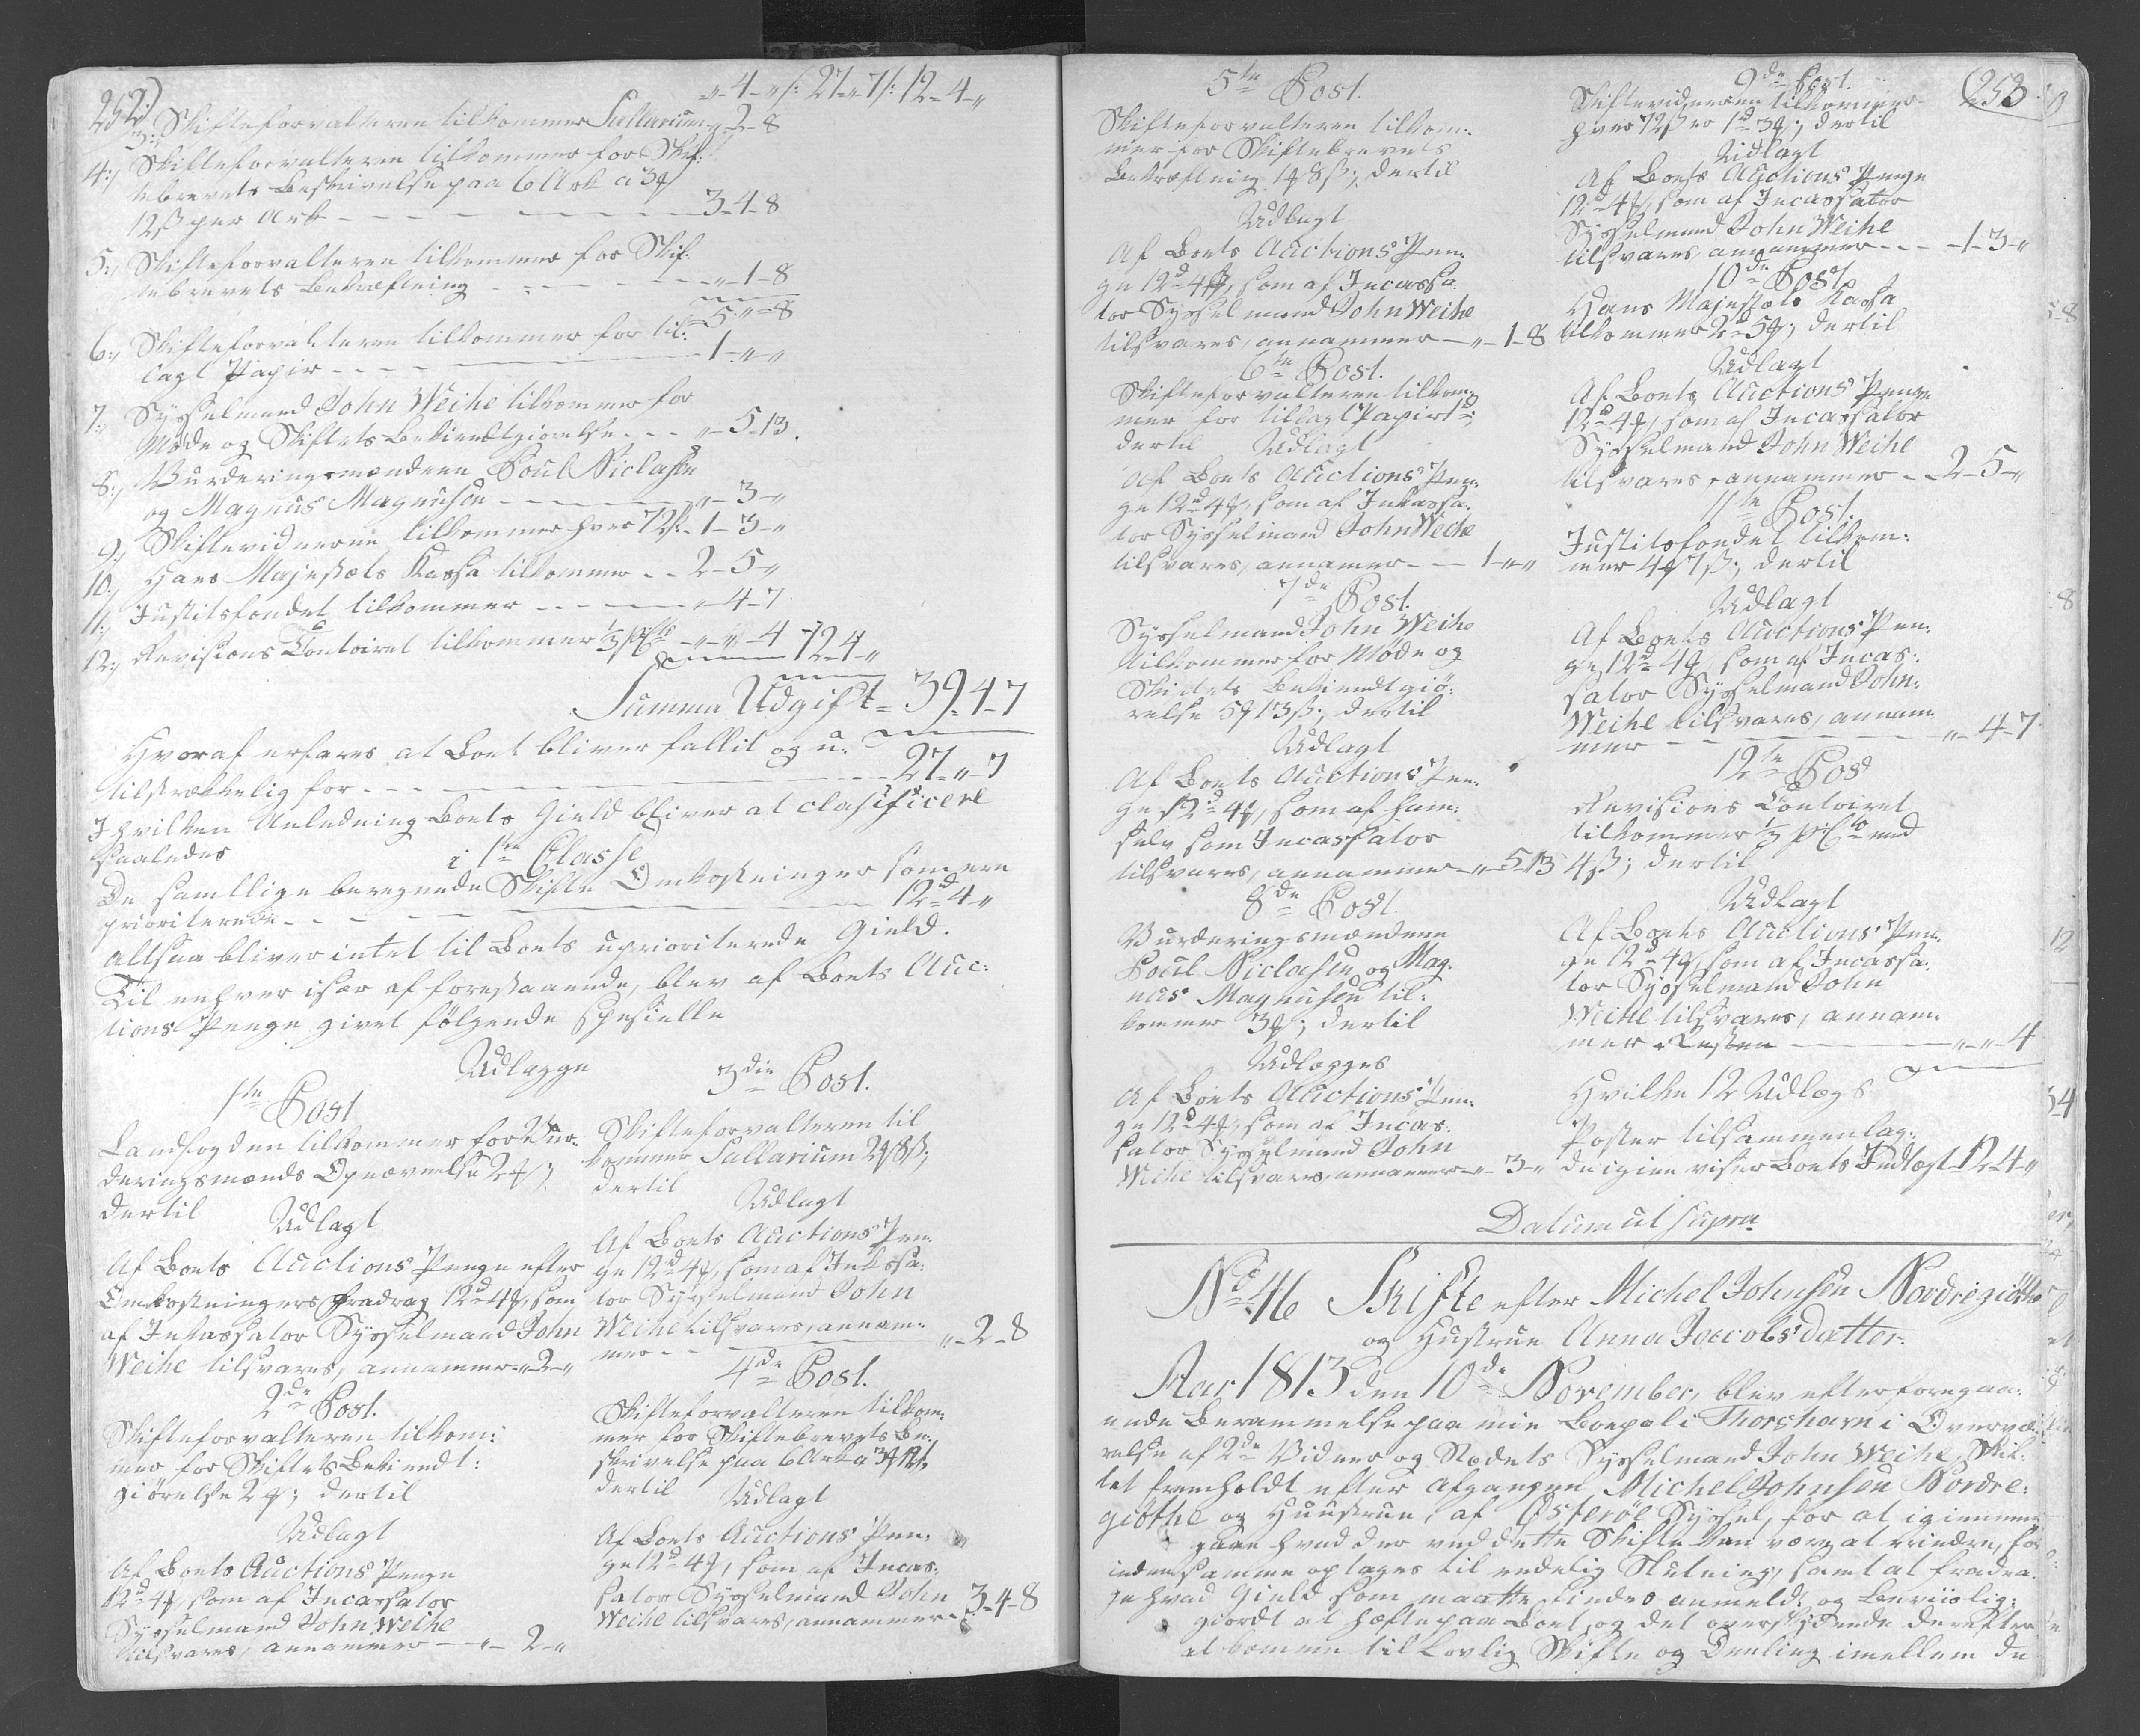 252)
„-4-„ /: 27-„-7 /: 12-4-„
3:, Skifteforvalteren tilkommer Sallarium „-2-8
4:, Skifteforvalteren tilkommer for Skif-
tebrevets Beskrivelse paa 6 Ark a 3 ₰
12 ß per Ark - - - - - 3-4-8
5:, Skifteforvalteren tilkommer for Skif-
tebrevets Bekræftning - - - - „-1-8
5-„-8
6:, Skifteforvalteren tilkommer for til-
lagt Papir - - - - 1-„-„
7:, Sysselmand John Weihe tilkommer for
Møde og Skiftets Bekiendtgiørelse - - - „-5-13.
8:, Vurderingsmændene Poul Niclasen
og Magnus Magnusen - - - - „-3-„
9:, Skiftevidnerne tilkommer hver 72 ß - 1-3-„
10:, Hans Majestæts Kassa tilkommer - - 2-5-„
11:, Justitsfondet tilkommer - - - - „-4-7
12:, Revisions Contoiret tilkommer 1/3 pCto „-„-4 12-4-„
Summa Udgift = 39-4-7
Hvoraf erfares at Boet bliver fallit og u-
tilstrækkelig for - - - - 27-„-7
I hvilken Anledning Boets Gield bliver at clasificere
saaledes
i 1te Classe
De samtlige beregnede Skifte Omkostninger som ere
prioriterede - - - - 12d-4-„
altsaa bliver intet til Boets uprioriterede Gield.
Til enhver især af forestaaende, blev af Boets Auc-
tions Penge givet følgende specielle
Udlægge
1te Post
Landfogden tilkommer for Vur-
deringsmænds Opnævnelse 2 ₰;
dertil
Udlagt
Af Boets Auctions Penge efter
Omkostningers fradrag 12d 4 ₰, som
af Inkassator Sysselmand John
Weihe tilsvares, annammer „-2-„
2de Post.
Skifteforvalteren tilkom-
mer for Skiftets Bekiendt-
giørelse 2 ₰; dertil
Udlagt
Af Boets Auctions Penge
12d 4 ₰, som af Incassator
Sysselmand John Weihe
tilsvares, annammer - „-2-„
3die Post.
Skifteforvalteren til
kommer Sallarium 2 ₰ 8 ß;
dertil
Udlagt
Af Boets Auctions Pen-
ge 12d 4 ₰, som af Inkassa-
tor Sysselmand John
Weihe tilsvares, annam-
mer - - - „-2-8
4de Post.
Skifteforvalteren tilkom-
mer for Skiftebrevets Be-
skrivelse paa 6 Ark a 3 ₰ 12 ß,
dertil
Udlagt
Af Boets Auctions Pen-
ge 12d 4 ₰, som af Incas-
sator Sysselmand John
Weihe tilsvares, annammer - 3-4-8
(253.
5te Post.
Skifteforvalteren tilkom-
mer for Skiftebrevets
Bekræftning 1 ₰ 8 ß; dertil
Udlagt
Af Boets Auctions Pen-
ge 12d 4 ₰, som af Incassa-
tor Sysselmand John Weihe
tilsvares, annammer - „-1-8
6te Post.
Skifteforvalteren tilkom-
mer for tillagt Papir 1d;
dertil Udlagt
Af Boets Auctions Pen-
ge 12d 4 ₰, som af Inkassa-
tor Sysselmand John Weihe
tilsvares, annamer - - 1-„-„
7de Post.
Sysselmand John Weihe
tilkommer for Møde og
Skiftets Bekiendtgiø-
relse 5 ₰ 13 ß; dertil
Udlagt
Af Boets Auctions Pen-
ge 12d 4 ₰, som af ham
selv som Incassator
tilsvares, annammer - „-5-13
8de Post.
Vurderingsmændene
Poul Niclasen og Mag-
nus Magnusen til-
kommer 3 ₰; dertil
Udlægges
Af Boets Auctions Pen-
ge 12d 4 ₰, som af Incas-
sator Sysselmand John
Weihe tilsvares, annammer „-3-„
9de Post.
Skiftevidnerne tilkommer
hver 72 ß er 1d 3 ₰; dertil
Udlagt
Af Boets Auctions Penge
12d 4 ₰, som af Incassator
Sysselmand John Weihe
tilsvares, annammer - - 1-3-„
10de Post
Hans Majestæts Kassa
tilkommer 2d 5 ₰; dertil
Udlagt
Af Boets Auctions Penge
12d 4 ₰, som af Incassator
Sysselmand John Weihe
tilsvares, annammer - 2-5-„
11te Post.
Justitsfondet tilkom-
mer 4 ₰ 7 ß; dertil
Udlagt
Af Boets Auctions Pen-
ge 12d 4 ₰, som af Incas-
sator Sysselmand John
Weihe tilsvares, annam-
mer - - - „-4-7
12te Post
Revisions Contoiret
tilkommer 1/3 pCto med
4 ß; dertil
Udlagt
Af Boets Auctions Pen-
ge 12d 4 ₰, som af Incassa-
tor Sysselmand John
Weihe tilsvares, annam-
mer Resten - - - „-„-4
Hvilke 12 Udlægs
Poster tilsammenlag-
de igien viser Boets Indtægt 12-4-„
Datum ut supra
No 46 Skifte efter Michel Johnsen Nordregiøthe
og Hustrue Anna Jaccobsdatter.
Aar 1813 den 10de November, blev efter foregaa-
ende Berammelse paa min Boepæl i Thorshavn i Overvæ-
relse af 2de Vidner og Stedets Sysselmand John Weihe, Skif-
tet fremholdt efter afgangen Michel Johnsen Nordre-
giøthe og Huustrue, af Østerøe Syssel, for at igiennem
gaae hvad der ved dette Skifte kan være at erindre, før
inden samme optages til endelig Slutning, samt at fradra-
ge hvad Gield som maatte findes anmeldt og beviislig-
giordt at hæfte paa Boet, og det overskydende derefter
at komme til Lovlig Skifte og Deeling imellem de